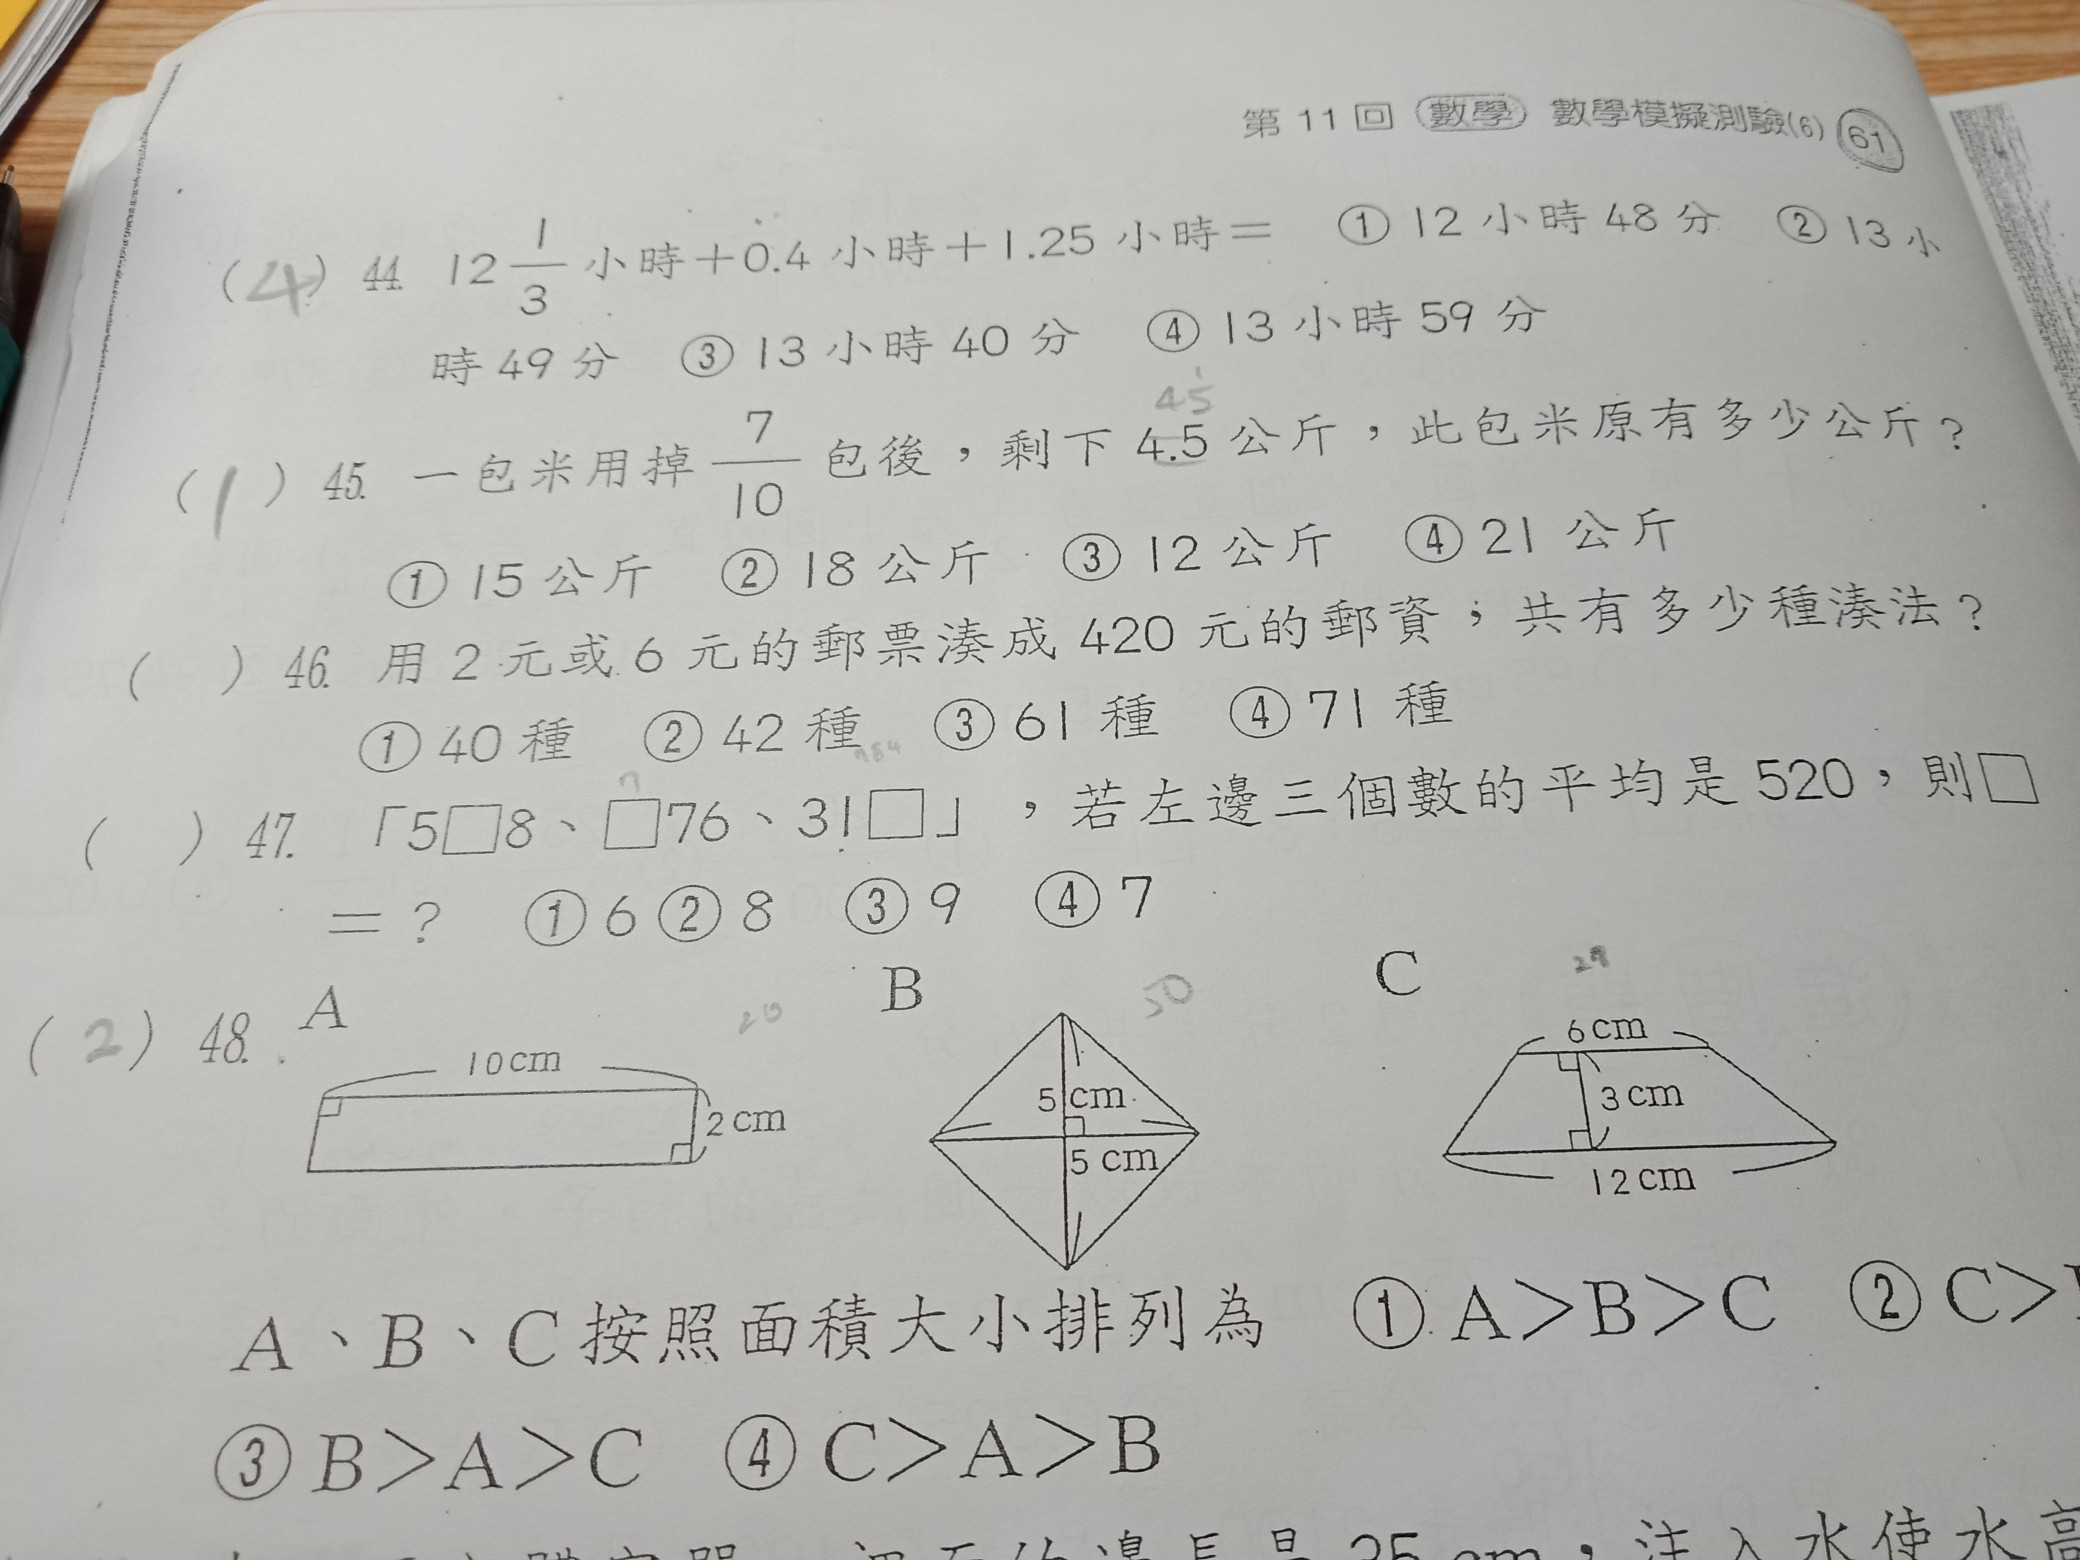 第 11 回 數學 數學模擬測驗(6) 61
(4) 44. 12 1/3 小時+0.4 小時+1.25 小時= ① 12 小時 48 分 ② 13 小
時 49 分 ③ 13 小時 40 分 ④ 13 小時 59 分
45
(1) 45. 一包米用掉 7/10 包後，剩下 4.5 公斤，此包米原有多少公斤？
① 15 公斤 ② 18 公斤 ③ 12 公斤 ④ 21 公斤
( ) 46. 用 2 元或 6 元的郵票湊成 420 元的郵資，共有多少種湊法？
① 40 種 ② 42 種 ③ 61 種 ④ 71 種
( ) 47. 「5□8、□76、31□」，若左邊三個數的平均是 520，則□
=？ ① 6 ② 8 ③ 9 ④ 7
(2) 48. A 20 B 50 C
10cm 2cm
5cm 5cm
6cm 3cm 12cm
A、B、C 按照面積大小排列為 ① A>B>C ② C>
③ B>A>C ④ C>A>B
25 cm，注入水使水高